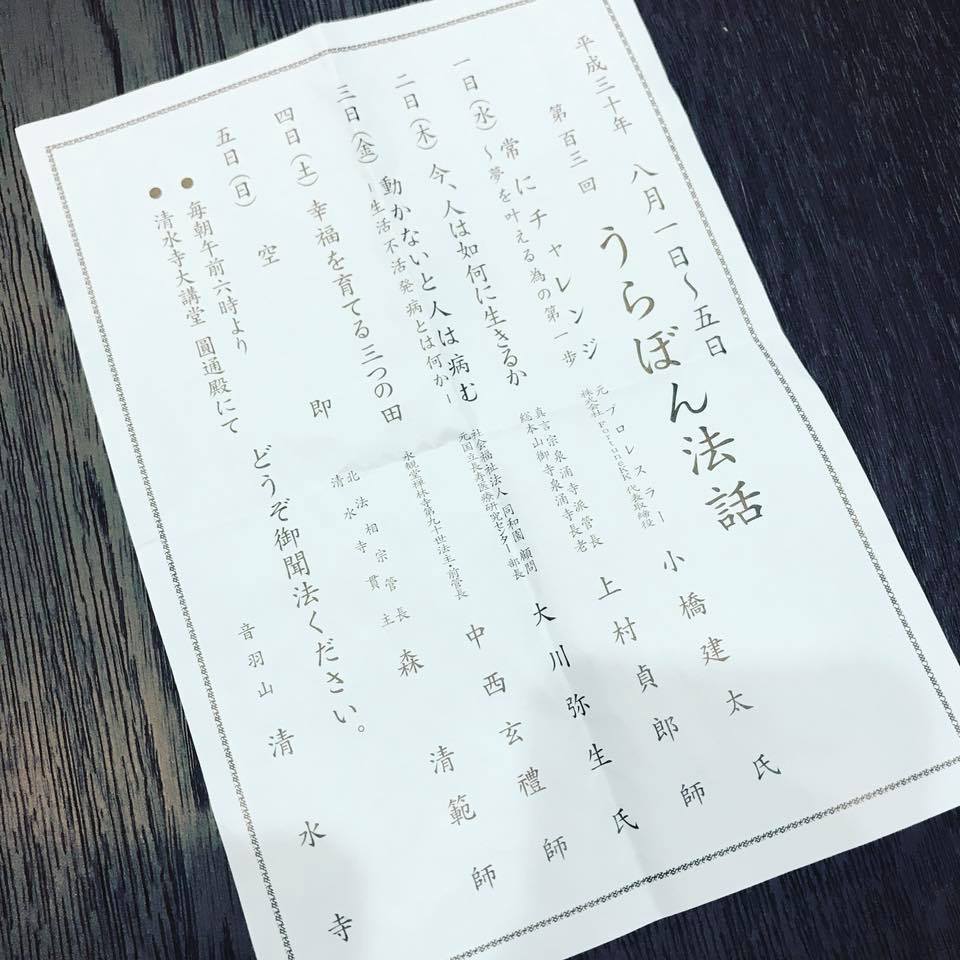 平成三十年 八月一日～五日
第百三回 うらぼん法話
一日(水) 常にチャレンジ
～夢を叶える為の第一歩
元プロレスラー
株式会社FortuneKK 代表取締役
小橋建太氏
二日(木) 今、人は如何に生きるか
真言宗泉涌寺派管長
総本山御寺泉涌寺長老
上村貞郎師
三日(金) 動かないと人は病む
－生活不活発病とは何か－
社会福祉法人同和園 顧問
元国立長寿医療研究センター部長
大川弥生氏
四日(土) 幸福を育てる三つの田
永観堂禅林寺第九十世法主・前管長
中西玄禮師
五日(日) 空即
北法相宗管長
清水寺貫主
森清範師
● 毎朝午前六時より
● 清水寺大講堂 圓通殿にて
どうぞ御聞法ください。
音羽山 清水寺